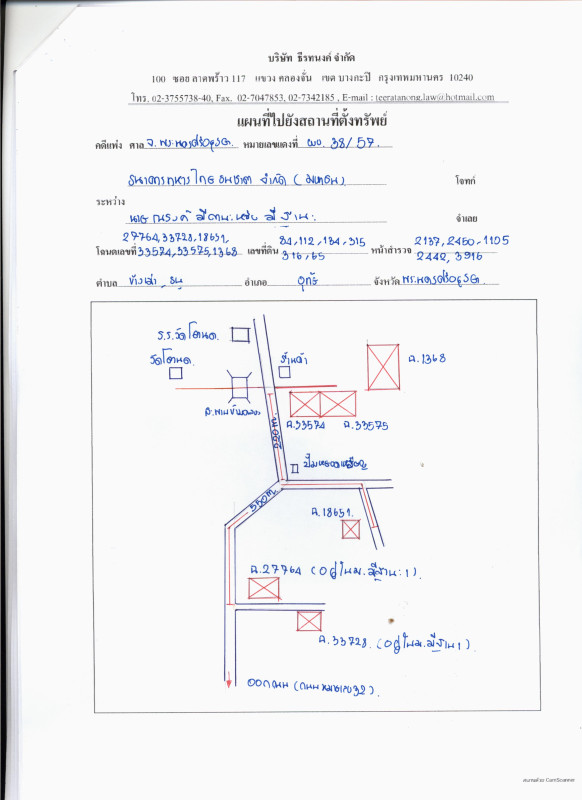 บริษัท ธีรทนงค์ จำกัด
100 ซอย ลาดพร้าว 117 แขวง คลองจั่น เขต บางกะปิ กรุงเทพมหานคร 10240
โทร. 02-3755738-40, Fax. 02-7047853, 02-7342185 , E-mail : teeratanong.law@hotmail.com
แผนที่ไปยังสถานที่ตั้งทรัพย์
คดีแพ่ง ศาล จ.พระนครศรีอยุธยา หมายเลขแดงที่ ผบ. 38/57.
ธนาคารทหารไทยธนชาต จำกัด (มหาชน) โจทก์
ระหว่าง
นายณรงค์ จำเลย
27764, 33728, 18651, 84, 112, 134, 315 2137, 2450, 1105
โฉนดเลขที่ 33574, 33575, 1368 เลขที่ดิน 316, 65 หน้าสำรวจ 2442, 3916
ตำบล ข้าวเม่า, ธนู อำเภอ อุทัย จังหวัด พระนครศรีอยุธยา
ร.ร.วัดโตนด
วัดโตนด
ร้านค้า
ฉ.1368
ฉ.33574 ฉ.33575
200ม.
550ม.
ฉ.18651.
ฉ.27764 (อยู่ในม.
ฉ.33728. (อยู่ในม.
ออกถนน (ถนนหมายเลข32).
สแกนด้วย CamScanner